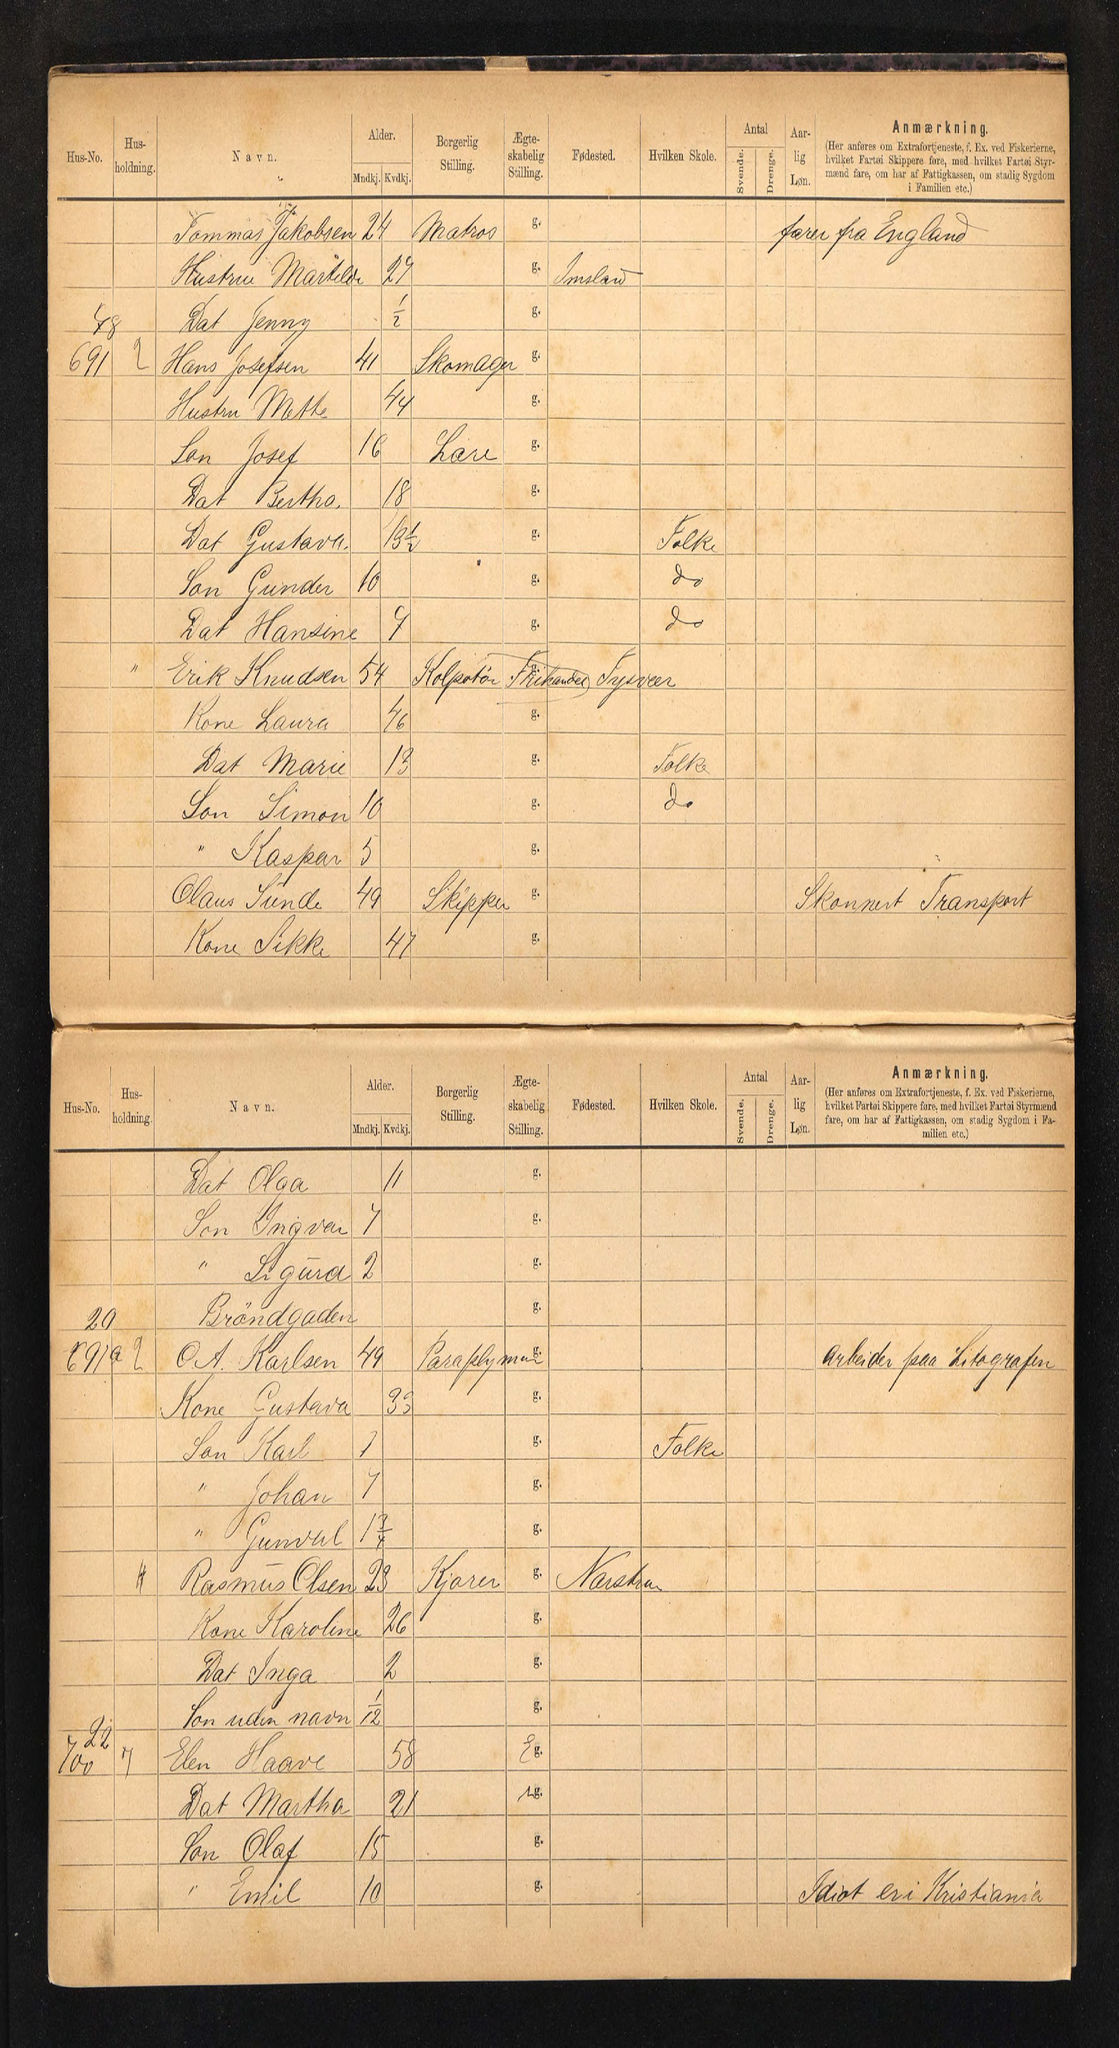 Hus-No. Hus-holdning. Navn. Alder. Mndkj. Kvdkj. Borgerlig Stilling. Ægte-skabelig Stilling. Fødested. Hvilken Skole. Antal Svende. Drenge. Aar-lig Løn. Anmærkning.
(Her anføres om Extrafortjeneste, f. Ex. ved Fiskerierne,
hvilket Fartøi Skippere føre, med hvilket Fartøi Styr-
mænd fare, om har af Fattigkassen, om stadig Sygdom
i Familien etc.)
Tommas Jakobsen 24 Matros g. farer fra England
Hustru Martilde 27 g. Imsland
48 Dat Jenny 1/2 g.
691 2 Hans Josefsen 41 Skomager g.
Hustru Mette 44 g.
Søn Josef 16 Lære g.
Dat Bertha. 18 g.
Dat Gustava. 13 1/2 g. Folke
Søn Gunder 10 g. do
Dat Hansine 7 g. do
" Erik Knudsen 54 Kolpotör g. Tysvær
Kone Laura 46 g.
Dat Marie 13 g. Folke
Søn Simon 10 g. do
" Kaspar 5 g.
Olaus Sunde 49 Skipper g. Skonnert Transport
Kone Sikke 47 g.
Hus-No. Hus-holdning. Navn. Alder. Mndkj. Kvdkj. Borgerlig Stilling. Ægte-skabelig Stilling. Fødested. Hvilken Skole. Antal Svende. Drenge. Aar-lig Løn. Anmærkning.
(Her anføres om Extrafortjeneste, f. Ex. ved Fiskerierne,
hvilket Fartøi Skippere føre, med hvilket Fartøi Styrmænd
fare, om har af Fattigkassen, om stadig Sygdom i Fa-
milien etc.)
Dat Olga 11 g.
Søn Ingvar 7 g.
" Sigurd 2 g.
20 Bröndgaden g.
691a 2 O. A. Karlsen 49 g. Arbeider paa Litografen
Kone Gustava 33 g.
Søn Karl 7 g. Folke
" Johan 7 g.
" Gunvul 1 3/4 g.
Rasmus Olsen 23 Kjører g.
Kone Karoline 26 g.
Dat Inga 2 g.
Søn uden navn 1/12 g.
22
700 7 Elen Haave 58 Eg.
Dat Martha 21 g.
Søn Olaf 15 g.
" Emil 10 g. Idiot er i Kristiania